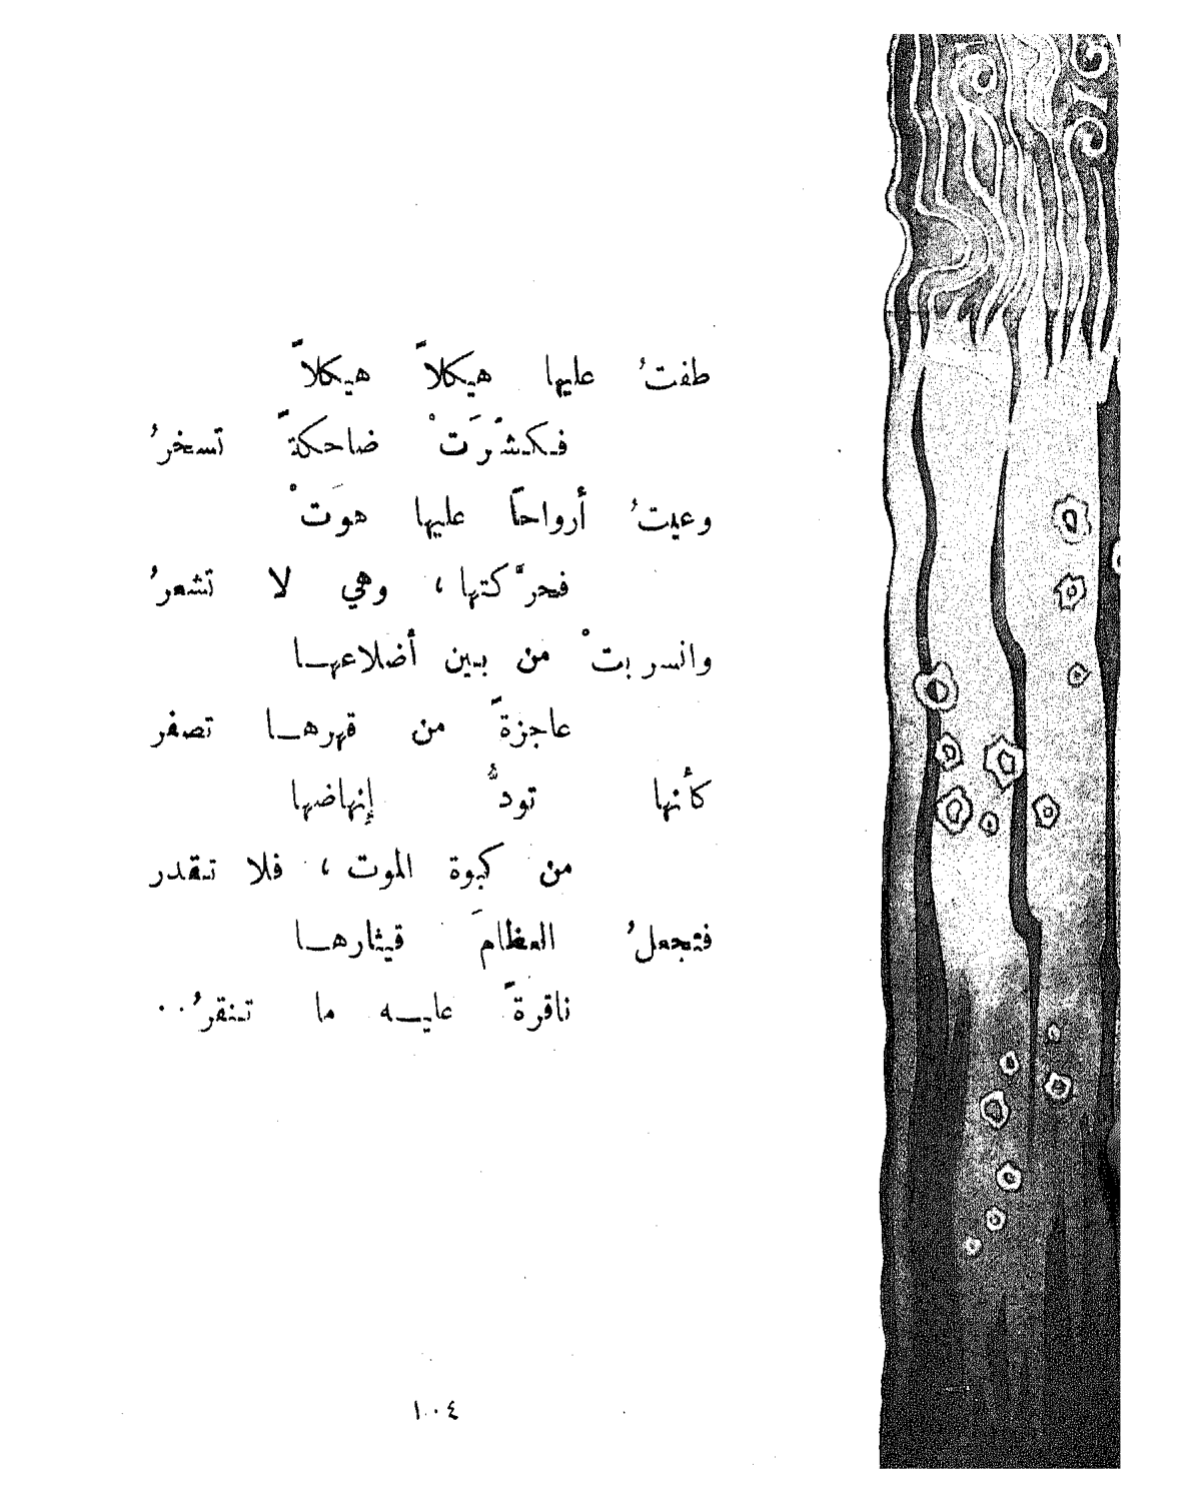 طفتُ عليها هيكلاً هيكلاً
فكشَّرَتْ ضاحكةً تسخرُ
وعيتُ أرواحاً عليها هوَتْ
فحرَّكتها ، وهي لا تشعرُ
وانسربتْ من بين أضلاعها
عاجزةً من قهرها تصفر
كأنها تودُّ إنهاضها
من كبوة الموت ، فلا تقدر
فتجعلُ العظامَ قيثارها
ناقرةً عليه ما تنقرُ..
١٠٤